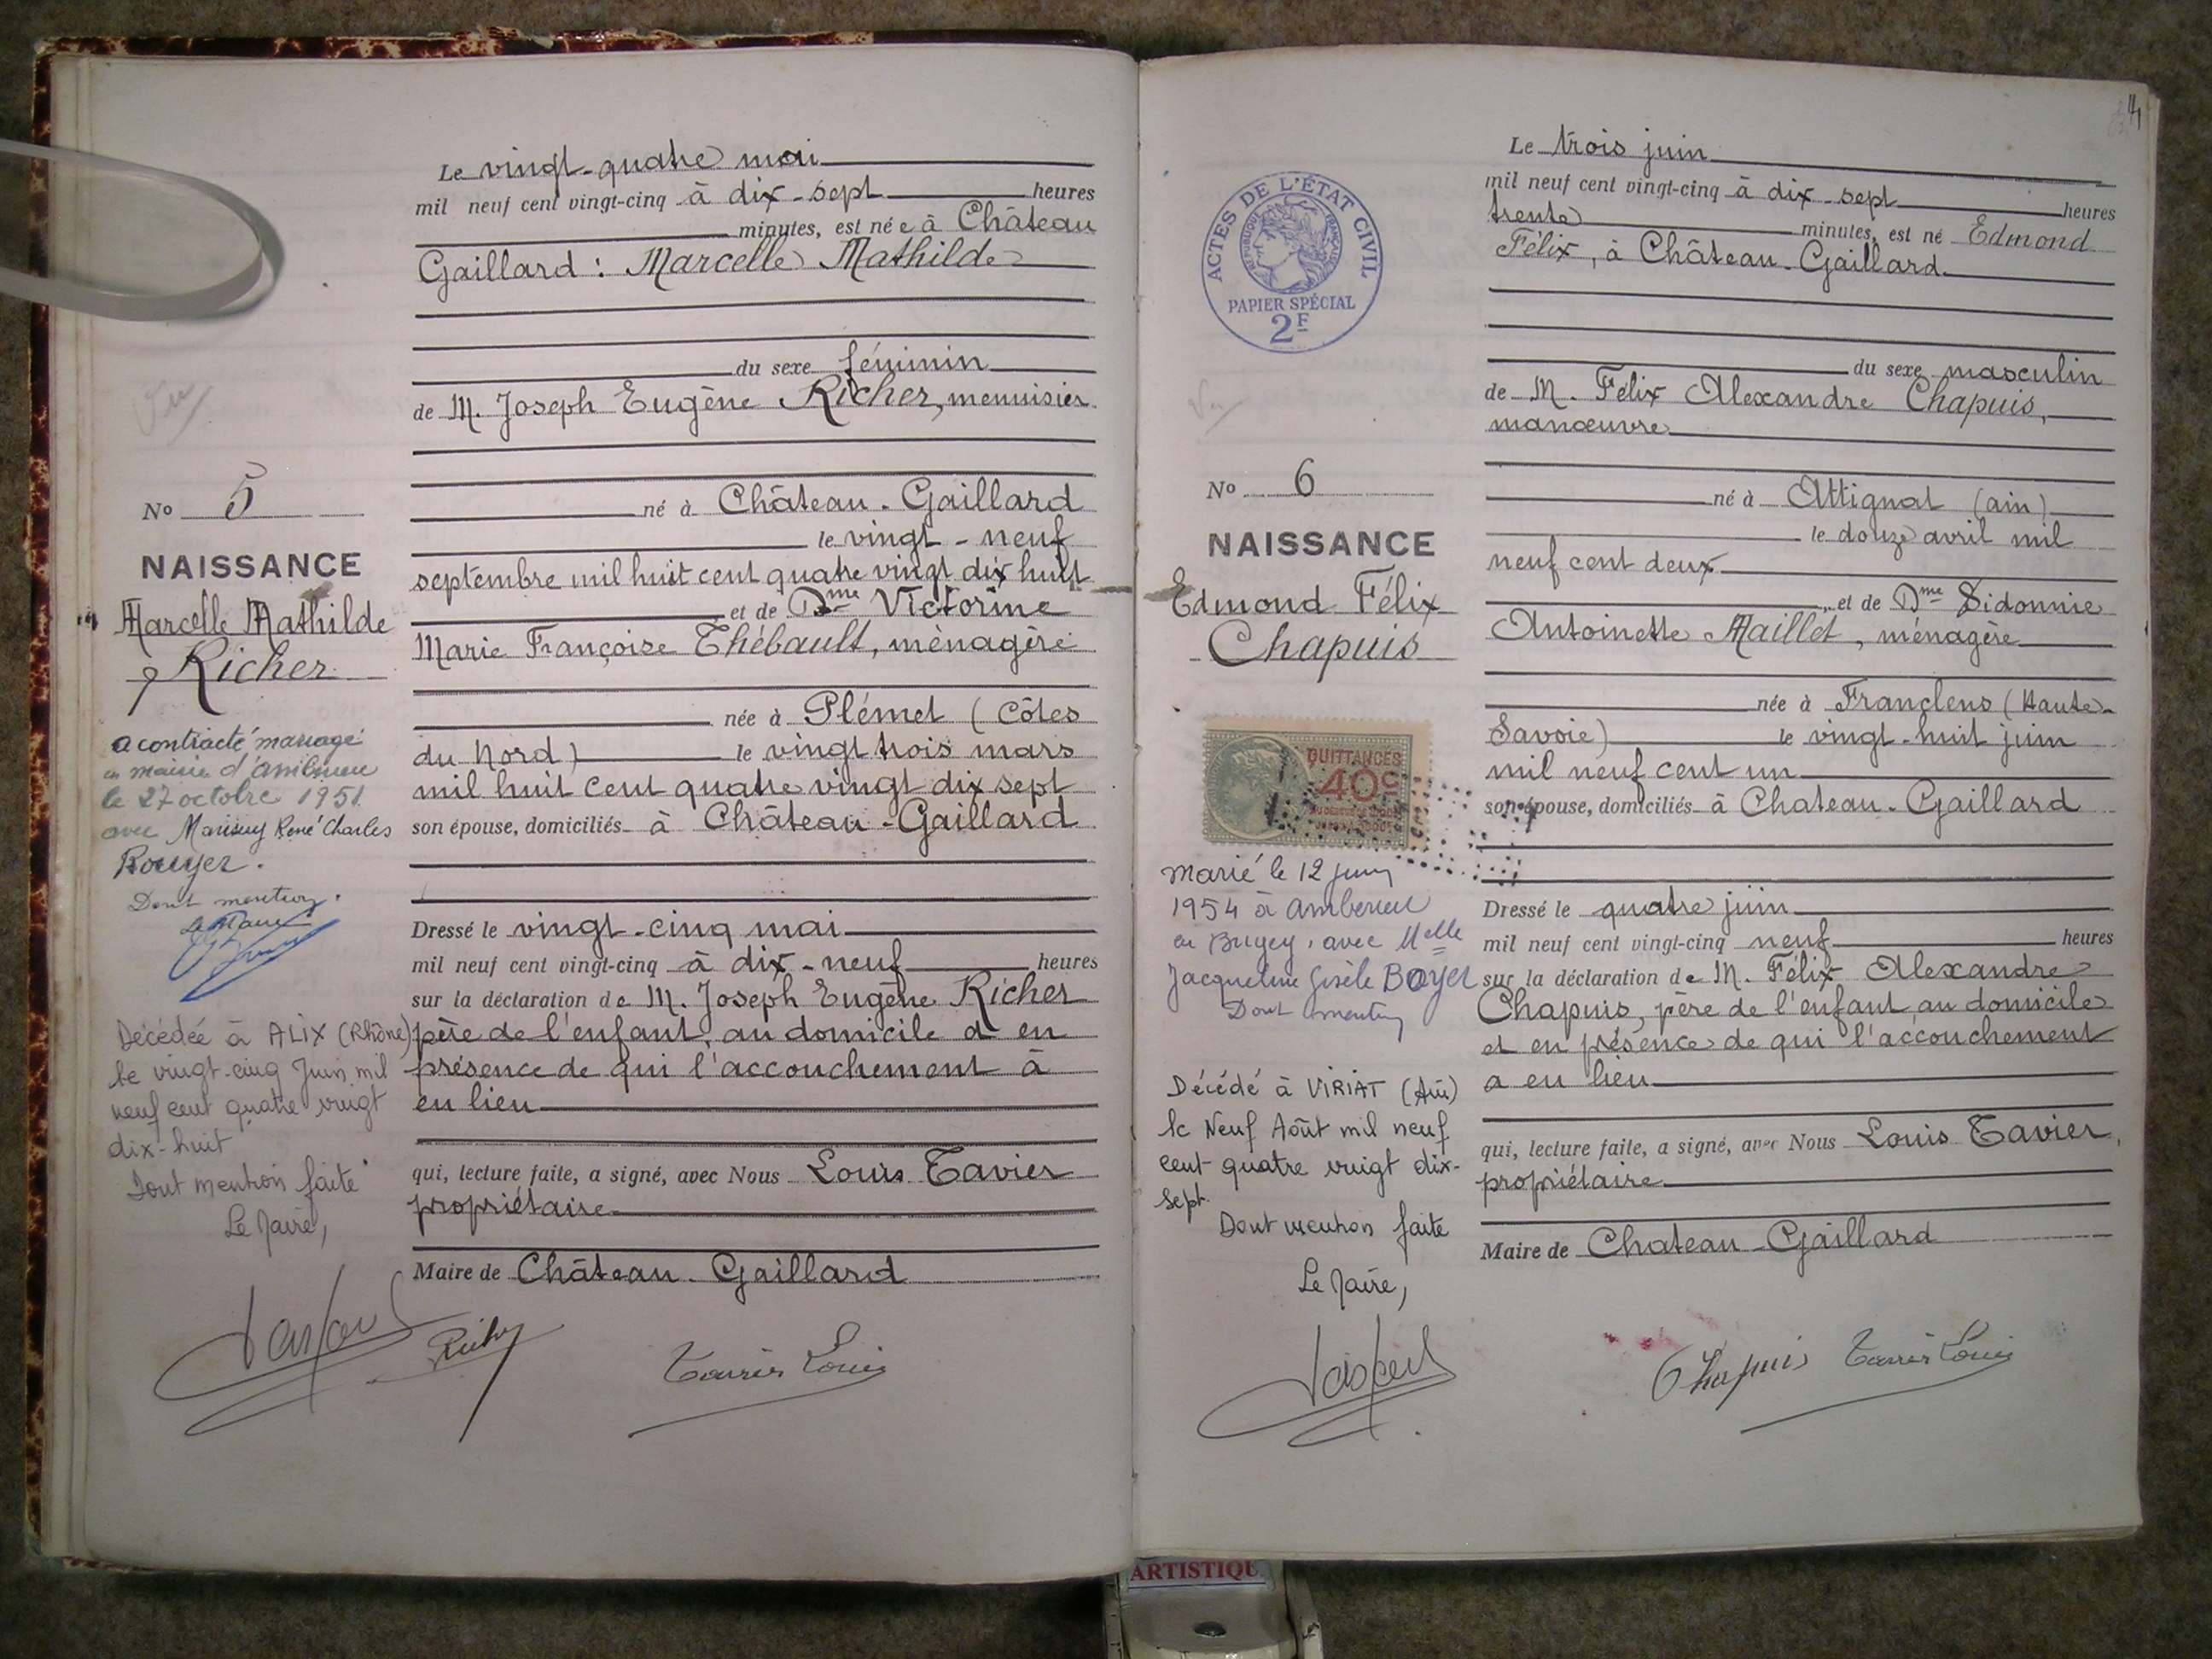 Le vingt-quatre mai
mil neuf cent vingt-cinq à dix-sept heures
minutes, est née à Château
Gaillard : Marcelle Mathilde
du sexe féminin
de M. Joseph Eugène Richer, menuisier
né à Château-Gaillard
le vingt-neuf
septembre mil huit cent quatre vingt dix huit
et de Dme Victorine
Marie Françoise Thébault, ménagère
née à Plémet (Côtes
du Nord) le vingt trois mars
mil huit cent quatre vingt dix sept
son épouse, domiciliés à Château-Gaillard
Dressé le vingt-cinq mai
mil neuf cent vingt-cinq à dix-neuf heures
sur la déclaration de M. Joseph Eugène Richer
père de l'enfant, au domicile et en
présence de qui l'accouchement à
eu lieu
qui, lecture faite, a signé, avec Nous Louis Tavier
propriétaire
Maire de Château-Gaillard
Tavier Louis
Vu
No 5
NAISSANCE
Marcelle Mathilde
Richer
a contracté mariage
en mairie d'Ambérieu
le 27 octobre 1951
avec Mansuy René Charles
Rouyer.
Dont mention.
Le Maire
Décédée à ALIX (Rhône)
le vingt-cinq Juin mil
neuf cent quatre vingt
dix-huit
Dont mention faite
Le Maire,
4
Le trois juin
mil neuf cent vingt-cinq à dix-sept heures
trente minutes, est né Edmond
Félix, à Château-Gaillard
du sexe masculin
de M. Félix Alexandre Chapuis,
manœuvre
né à Attignat (ain)
le douze avril mil
neuf cent deux
et de Dme Sidonnie
Antoinette Maillet, ménagère
née à Franclens (Haute-
Savoie) le vingt-huit juin
mil neuf cent un
son épouse, domiciliés à Chateau-Gaillard
Dressé le quatre juin
mil neuf cent vingt-cinq neuf heures
sur la déclaration de M. Félix Alexandre
Chapuis, père de l'enfant, au domicile
et en présence de qui l'accouchement
a eu lieu
qui, lecture faite, a signé, avec Nous Louis Tavier,
propriétaire
Maire de Chateau-Gaillard
Chapuis Tavier Louis
ACTES DE L'ÉTAT CIVIL
RÉPUBLIQUE FRANÇAISE
PAPIER SPÉCIAL
2F
Vu
No 6
NAISSANCE
Edmond Félix
Chapuis
QUITTANCES
40c
marié le 12 juin
1954 à Ambérieu
en Bugey, avec Melle
Jacqueline Gisèle Boyer
Dont mention
Décédé à VIRIAT (Ain)
le Neuf Août mil neuf
cent quatre vingt dix-
sept.
Dont mention faite
Le Maire,
ARTISTIQU